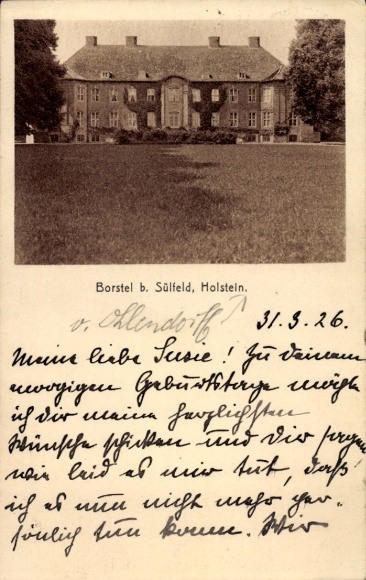 Borstel b. Sülfeld, Holstein.
v. Ohlendorff
31.3.26.
Meine liebe Susie! Zu deinem
morgigen Geburtstage möchte
ich dir meine herzlichsten
Wünsche schicken und dir sagen
wie leid es mir tut, daß
ich es nun nicht mehr per-
sönlich tun kann. Wir